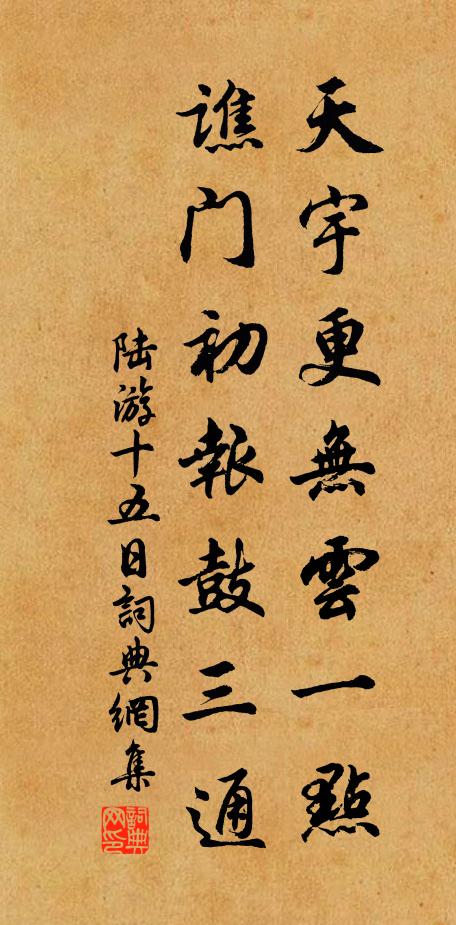 天宇更無雲一點
譙門初報鼓三通
陆游十五日詞典網集
詞典網印